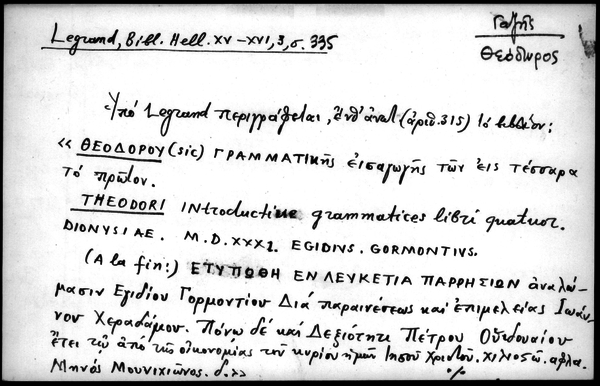 Legrand, Bibl. Hell. XV–XVI, 3, σ. 335
Γαζῆς
Θεόδωρος
Ὑπό Legrand περιγράφεται, (ἀριθ. 315) τό βιβλίον:
« ΘΕΟΔΟΡΟΥ (sic) ΓΡΑΜΜΑΤΙΚῆς εἰσαγωγῆς τῶν εἰς τέσσαρα
τό πρῶτον.
THEODORI INtroductivae grammatices libri quatuor.
DIONYSIAE. M.D.XXXI. EGIDIUS. GORMONTIVS.
(A la fin:) ΕΤΥΠΩΘΗ ΕΝ ΛΕΥΚΕΤΙΑ ΠΑΡΡΗΣΙΩΝ ἀναλώ-
μασιν Εγιδίου Γορμοντίου Διά παραινέσεως και ἐπιμελείας Ιωάν-
νου Χεραδάμου. Πόνῳ δέ και Δεξιότητι Πέτρου Οὐιδουαίου
ἔτει τῷ ἀπό τῆς οἰκονομίας τοῦ κυρίου ἡμῶν Ιησοῦ Χριστοῦ. χιλιοστῷ. αφλα.
Μηνός Μουνιχιῶνος. δ.»
%